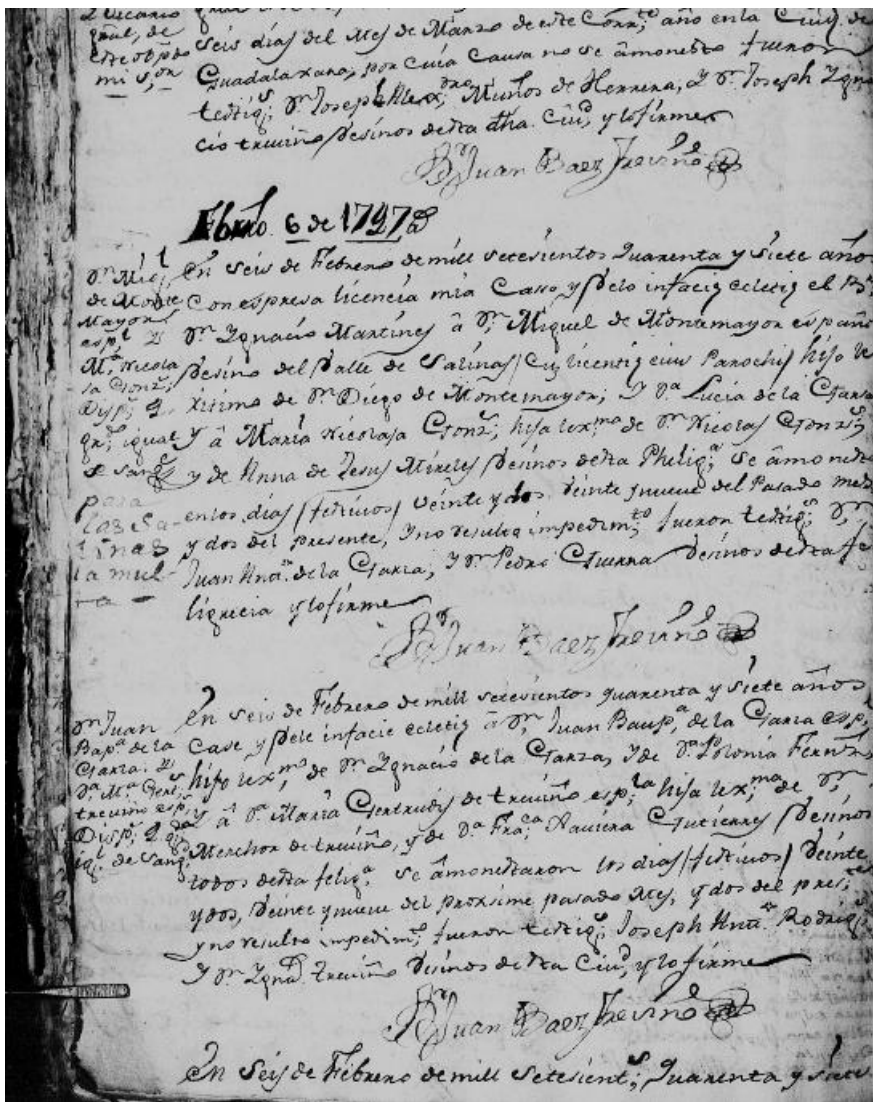 seis días del Mes de Marzo de este Corr.te año en la Ciu.d de
Guadalaxara, por cuia Causa no se amonesto fueron
testig.s D.n Joseph Alex.dro Muños de Herrera, y D.n Joseph Ygna
cio treviño Vesinos desta dha. Ciu.d y lo firme
B.r Juan Baez Treviño
Febrero 6 de 1747 a.s
D.n Mig.l
de Monte
Mayor
esp.l y
M.a Nicola
sa Gonz.s
Disp.s 2.
gr.s igual
de sang.e
para
las Sa-
linas
la mul-
ta
En seis de Febrero de mill setesientos Quarenta y siete años
Con espresa licencia mia Caso y Velo infacie eclecię el B.r
D.n Ygnacio Martines â D.n Miguel de Montemayor españo
Vesino del Valle de Salinas hijo le
xitimo de D.n Diego de Montemayor; y D.a Lucia de la Garza
y â Maria Nicolasa Gonz.s; hija lex.ma de D.n Nicolas Gonz.s
y de Anna de Jesus Mireles Vesinos desta Phelig.a; Se amoneste
en los dias festivos veinte y dos veinte y nueve del Pasado mes
y dos del presente, y no resulto impedim.to fueron testig.s D.n
Juan Ant.o de la Garza, y D.n Pedro Guerra Vesinos desta fe
ligrecia y lo firme
B.r Juan Baez Treviño
D.n Juan
Bap.a de la
Garza. y
D.a M.a Gert.s
treviño esp.s
Disp.s 2. g.do
ig.l de Sang.e
En seis de Febrero de mill setesientos quarenta y siete años
Case y Vele infacie eclecię â D.n Juan Baup.a de la Garza esp.l
hijo lex.mo de D.n Ygnacio de la Garza, y de D.a Polonia Fern.z
y â D.a Maria Gertrudis de treviño esp.la hija lex.ma de D.n
Merchor de treviño, y de D.a Fra.ca Xaviera Gutierres Vesinos
todos desta felig.a Se amonestaron los dias festivos veinte
y dos, veinte y nueve del proxsime pasado Mes, y dos del pres.te
y no resulto impedim.to fueron testig.s Joseph Ant.o Rodrig.s
y D.n Ygna.o treviño Vesinos desta Ciu.d y lo firme
B.r Juan Baez Treviño
En Seis de Febrero de mill Setesient.s Quarenta y siete